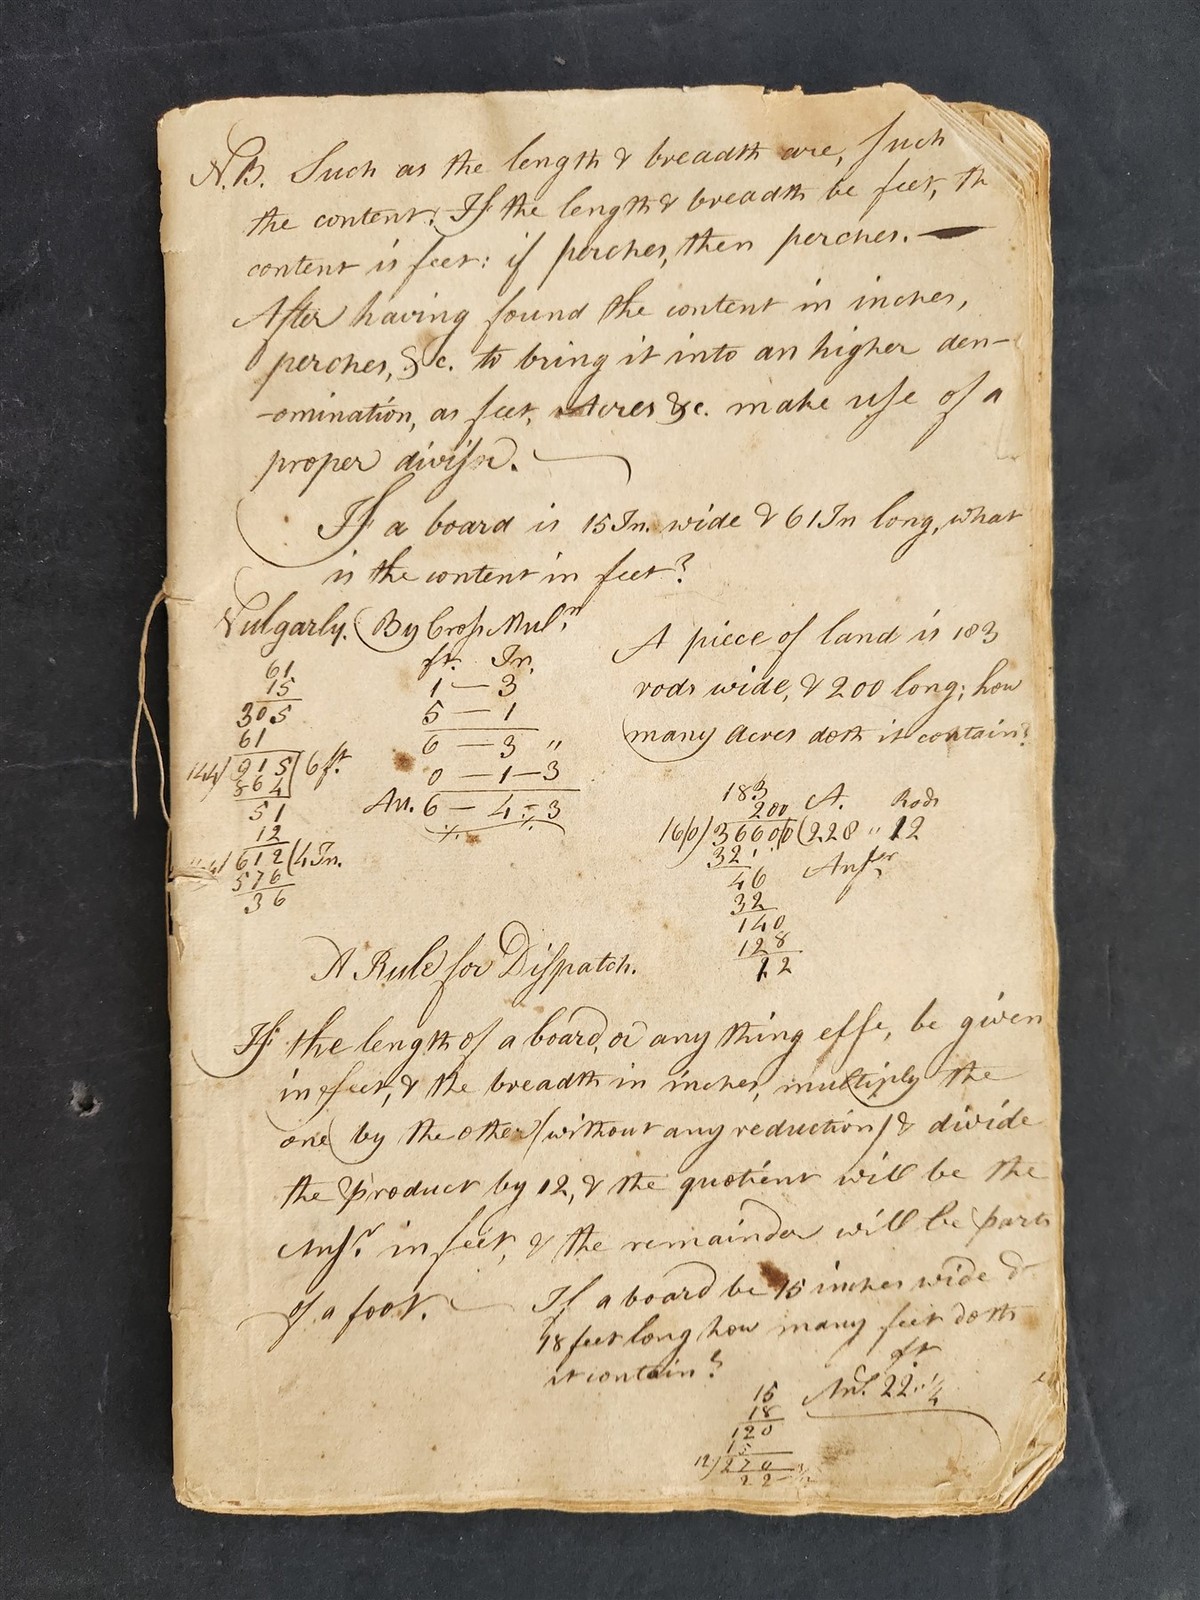 N.B. Such as the length & breadth are, Such
the content; If the length & breadth be feet, th
content is feet: if perches, then perches.—
After having found the content in inches,
perches, &c. to bring it into an higher den-
-omination, as feet, Acres &c. make use of a
proper divisr.
If a board is 15 In. wide & 61 In long, what
is the content in feet?
Vulgarly. By Cross Muln.
61
15
305
61
144)915(6ft.
864
51
12
612(4In.
576
36
ft. In.
1—3
5—1
6—3 "
0—1—3
An. 6—4—3
A piece of land is 183
rods wide, & 200 long; how
many Acres doth it contain?
183
200 A. Rods
16|0)3660|0(228 " 12
32 Anser
46
32
140
128
12
A Rule for Dispatch.
If the length of a board, or any thing else, be given
in feet, & the breadth in inches, multiply the
one by the other (without any reduction) & divide
the product by 12, & the quotient will be the
Ansr. in feet, & the remainder will be parts
of a foot.
If a board be 15 inches wide &
18 feet long how many feet doth
it contain?
ft
Ans. 22 " 1/4
15
18
120
15
12)270
22—